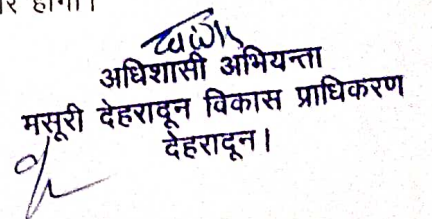 अधिशासी अभियन्ता
मसूरी देहरादून विकास प्राधिकरण
देहरादून।